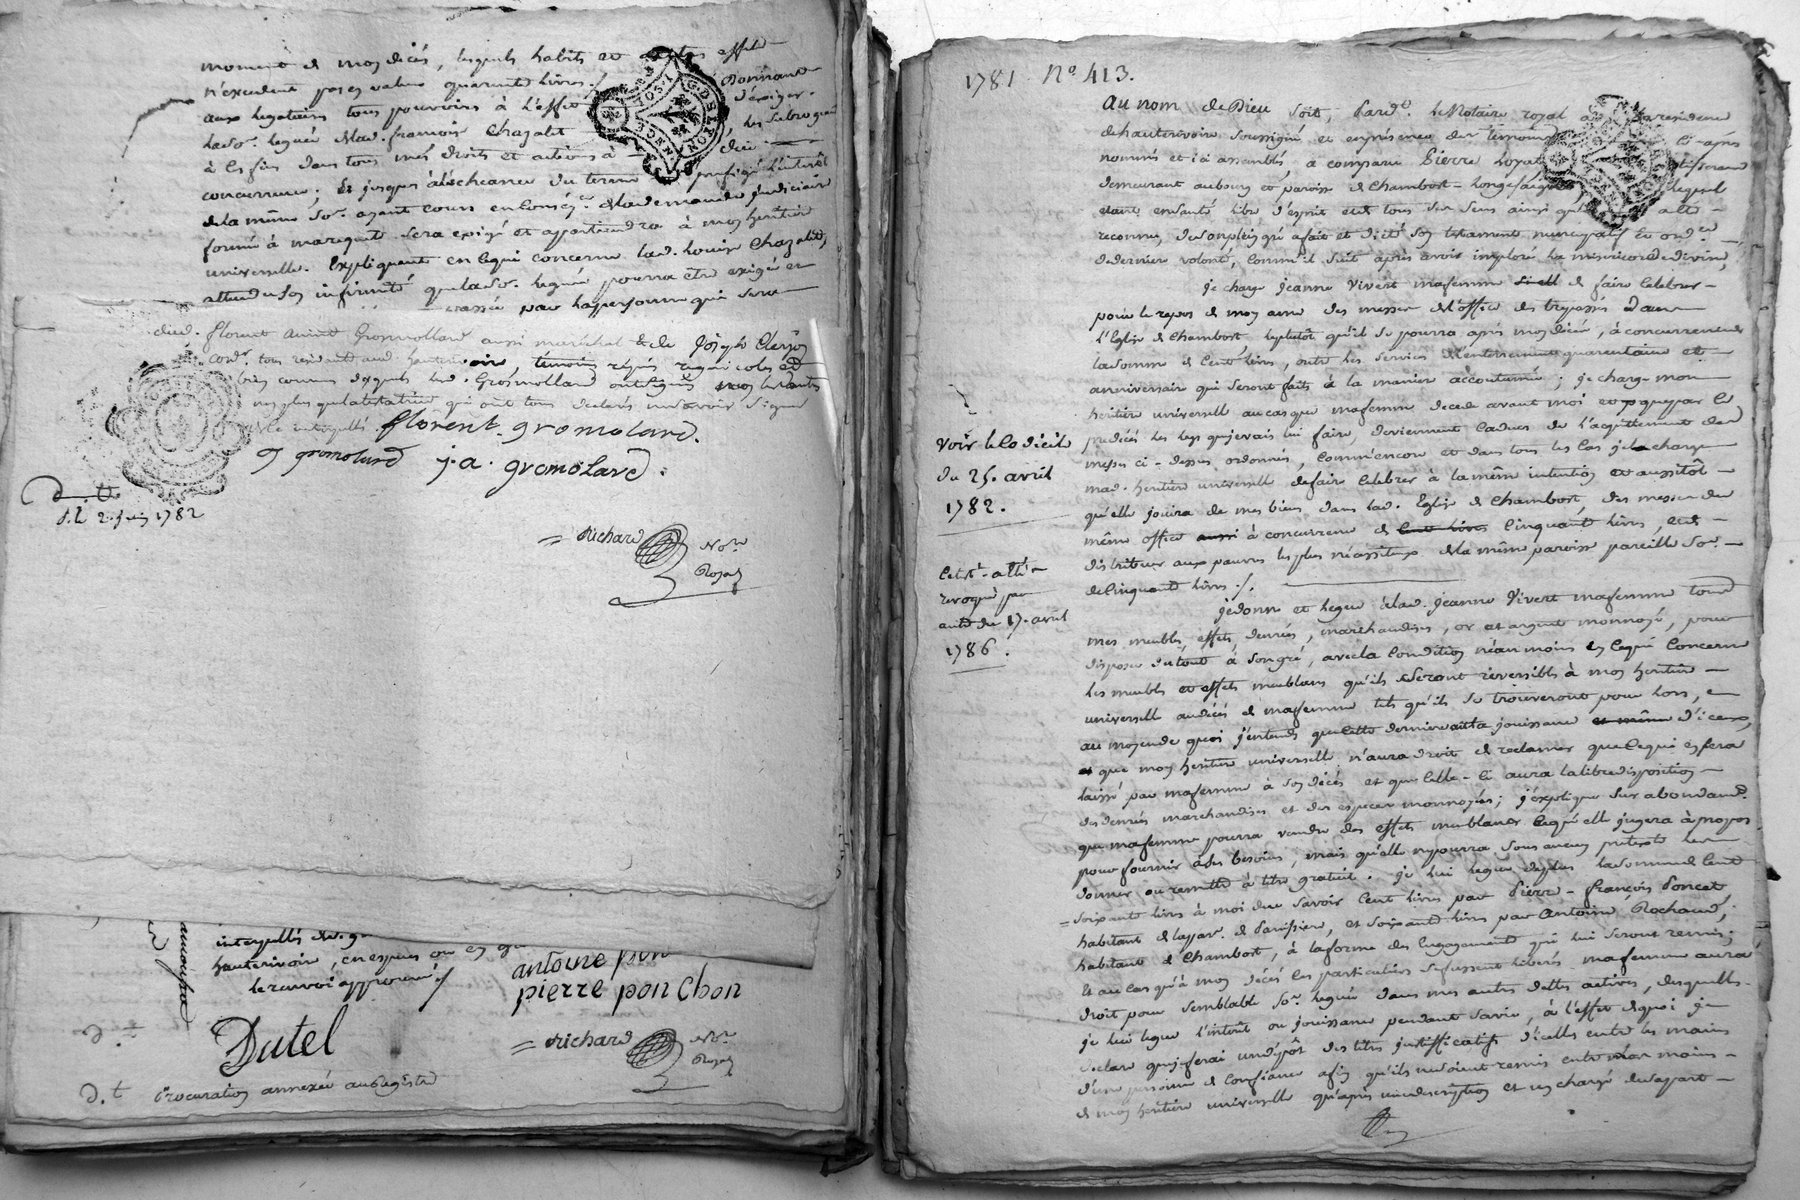 moment de mon décés, lesquels habits et effets
n'excedent pas en valeur quarante livres ./.          Donnant
aux legataires tous pouvoirs à l'effet          d'exiger
lad. so. leguée dud. françois Chazalet          , les subrogeant
à les fins dans tous mes droits et actions à          due
concurrence ; Et jusques à l'échéance du terme          prefigé l'intérêt
de la même so. ayant cours en conseq.ce de la demande judiciaire
formée à marequete sera exigé et appartiendra à mon heritier
universelle. Expliquant en ce qui concerne lad. Louise Chazalet,
attendu son infirmité que la so. leguée pourra etre exigée et
par la personne qui sera
dud. florent aimé Grosmollard aussi maréchal & de Joseph
tous residant aud. hauterivoir témoins réquis
bien connus desquels led. Grosmollard ont signé
non plus que la testatrice qui ont tous declaré ne savoir signer
de ce interpellés florent gromolard.
gromolard j. a. gromolard.
d. t.
d. t. 2. juin 1782
= Richard No.re
Royal
interpellés
hauterivoir, en
le renvoi approuvé ./
antoine pon
pierre ponchon
Dutel
= Richard No.re
Royal
d. t.
d. t. Procuration annexée au Registre
1781. N° 413.
Au nom de Dieu soit, Pard.t le Notaire royal à la residence
de hauterivoir soussigné et en présence des témoins ci-après
nommés et ici assemblés, a comparu Pierre Loyat
demeurant au bourg et paroisse de Chambost-Longessaigne, lequel
étant en santé libre d'esprit et de tous ses sens ainsi qu'il a été
reconnu, de son plein gré a fait et dicté son testament nuncupatif et ord.ce
de derniere volonté, comme il suit après avoir imploré la misericorde divine,
je charge jeanne Vivert ma femme de faire celebrer
pour le repos de mon ame des messes de l'office des trépassés dans
l'Eglise de Chambost le plutôt qu'il se pourra après mon décés, à concurrence de
la somme de Cent livres, outre les services d'enterrement quarantaine et
anniversaire qui seront faits à la manière accoutumée ; je charge mon
heritiere universelle au cas que ma femme decede avant moi et que par le
predécés les legs que je vais lui faire, deviennent caducs de l'acquittement des
messes ci-dessus ordonnées, comm'encore et dans tous les cas je la charge
mad. heritiere universelle de faire celebrer à la même intention et aussitôt
qu'elle jouira de mes biens dans lad. Eglise de Chambost, des messes du
même office aussi à concurrence de cent livres Cinquante livres, et de
distribuer aux pauvres les plus nécessiteux de la même paroisse pareille so.
de Cinquante livres ./.
je donne et legue à lad. jeanne Vivert ma femme tous
mes meubles, effets, denrées, marchandises, or et argent monnoyé, pour
disposer du tout à son gré, avec la condition néanmoins en ce qui concerne
les meubles et effets meublans qu'ils seront reversibles à mon heritiere
universelle au décés de ma femme tels qu'ils se trouveront pour lors, en
au moyen de quoi j'entends que cette derniere ait la jouissance et même d'iceux,
et que mon heritiere universelle n'aura droit de reclamer que ce qui en sera
laissé par ma femme à son décés et que celle-ci aura la libre disposition
des denrées marchandises et des especes monnoyées ; j'explique sur abondance
que ma femme pourra vendre des effets meublans ce qu'elle jugera à propos
pour fournir à ses besoins, mais qu'elle ne pourra sous aucun pretexte les
donner ou remettre à titre gratuit. je lui legue de plus la somme de Cent
soixante livres à moi due savoir Cent livres par Pierre-françois Poncet
habitant de la par. de Panissiere, et soixante livres par Antoine Rochard,
habitant de Chambost, à la forme des Engagements qui lui seront remis ;
Et au cas qu'à mon décés les particuliers se fussent liberés ma femme aura
droit pour semblable so. leguée dans mes autres dettes actives, desquelles
je lui legue l'intérêt ou jouissance pendant sa vie, à l'effet de quoi je
declare que je ferai un dépôt des titres justificatifs d'icelles entre les mains
d'une personne de confiance afin qu'ils ne soient remis entre les mains
de mon heritiere universelle qu'après une description et un chargé de sa part
Voir le Codicile
du 25. avril
1782.
revoqué par
acte du 17. avril
1786.